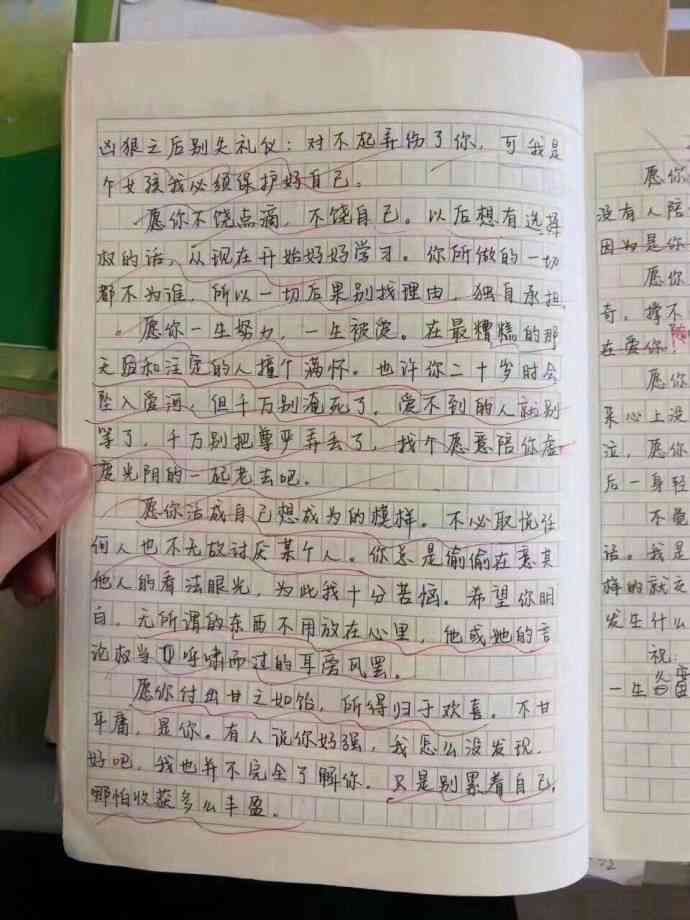 凶狠之后别失礼仪：对不起弄伤了你，可我是
个女孩我必须保护好自己。
愿你不饶点痛，不饶自己。以后想有选择
权的话，从现在开始好好学习。你所做的一切
都不为谁，所以一切后果别找理由，独自承担。
愿你一生努力，一生被爱。在最糟糕的那
天股和注定的人撞个满怀。也许你二十岁时会
坠入爱河，但千万别淹死了，爱不到的人就别
等了，千万别把尊严弄丢了，找个愿意陪你虚
度光阴的一起老去吧。
愿你活成自己想成为的模样。不必取悦任
何人也不无故讨厌某个人。你总是偷偷在意其
他人的看法眼光，为此我十分苦恼。希望你明
白，无所谓的东西不用放在心里，他或她的言
论权当呼啸而过的耳旁风罢。
愿你付出甘之如饴，所得归于欢喜。不甘
平庸，是你。有人说你好强，我怎么没发现，
好吧，我也并不完全了解你。只是别累着自己，
哪怕收获多么丰盈。
愿你
没有人陪
因为是你
愿你
奇，撑不
在爱你！
愿你
来心上没
泣，愿你
后一身轻
不觉
话。我是
梅的就交
发生什么
祝：
一生